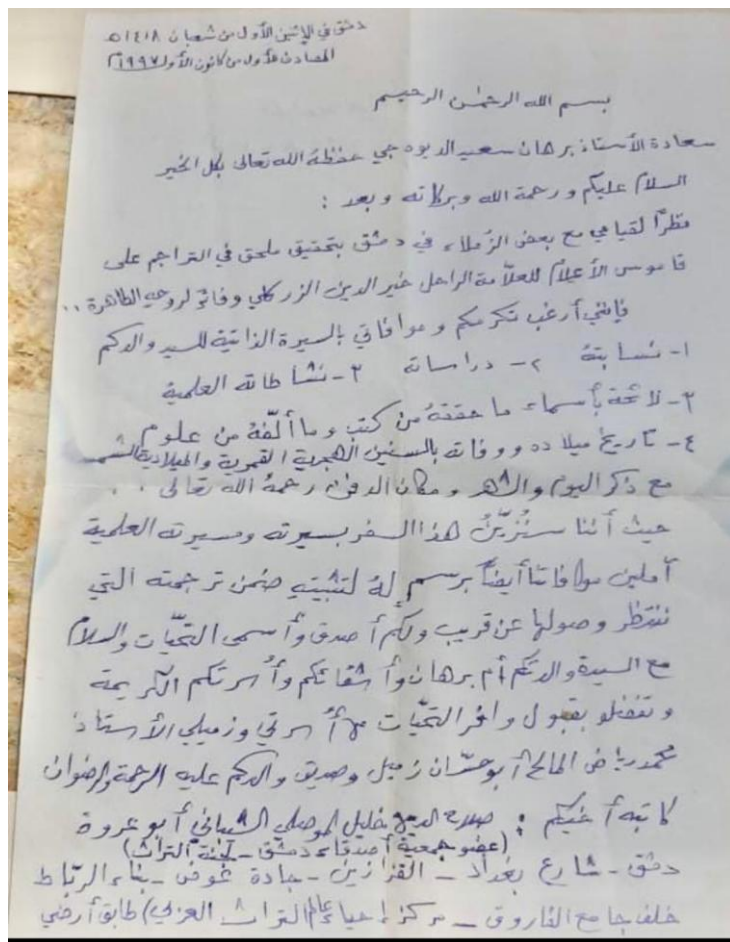 دمشق في الإثنين الأول من شعبان ١٤١٨ هـ
المصادف للأول من كانون الأول ١٩٩٧ م
بسم الله الرحمن الرحيم
سعادة الأستاذ برهان سعيد الديوه جي حفظه الله تعالى بكل الخير
السلام عليكم ورحمة الله وبركاته وبعد :
نظراً لقيامي مع بعض الزملاء في دمشق بتحقيق ملحق في التراجم على
قاموس الأعلام للعلّامة الراحل خير الدين الزركلي وفاءً لروحه الطاهرة ..
فإنني أرغب تكرمكم وموافاتي بالسيرة الذاتية للسيد والدكم
١- نسابته ٢- دراساته ٣- نشاطاته العلمية
٣- لائحة بأسماء ما حققه من كتب وما ألّفه من علوم
٤- تاريخ ميلاده ووفاته بالسنين الهجرية القمرية والميلادية الشمسية
مع ذكر اليوم والشهر ومكان الدفن رحمه الله تعالى ..
حيث أننا سنُزيّنُ هذا السفر بسيرته ومسيرته العلمية
آملين موافاتنا أيضاً برسم له لتثبيته ضمن ترجمته التي
ننتظر وصولها عن قريب ولكم أصدق وأسمى التحيّات والسلام
مع السيدة والدتكم أم برهان وأشقائكم وأسرتكم الكريمة
وتفضلو بقبول وافر التحيّات من أسرتي وزميلي الأستاذ
محمد رياض المالح أبو حسّان زميل وصديق والدكم عليه الرحمة والرضوان
كاتبه أخيكم : صلاح الدين خليل الموصلي الشيباني أبو عروة
(عضو جمعية أصدقاء دمشق - لجنة التراث)
دمشق - شارع بغداد - القزازين - جادة عوض - بناء الرباط
خلف جامع الفاروق - مركز إحياء التراث العربي) طابق أرضي